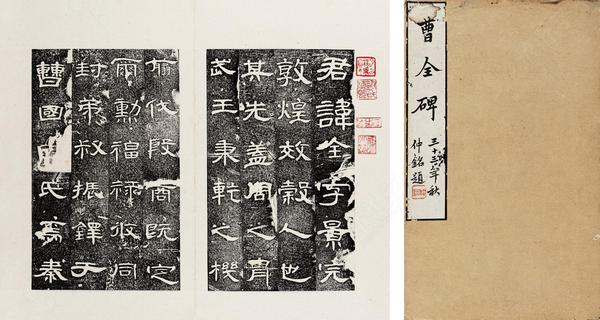 曹全碑
三十三年秋
仲銘題
君諱全字景完
敦煌效穀人也
其先蓋周之胄
武王秉乾之機
翦伐殷商既定
爾勳福祿攸同
封弟叔振鐸于
曹國因氏焉秦